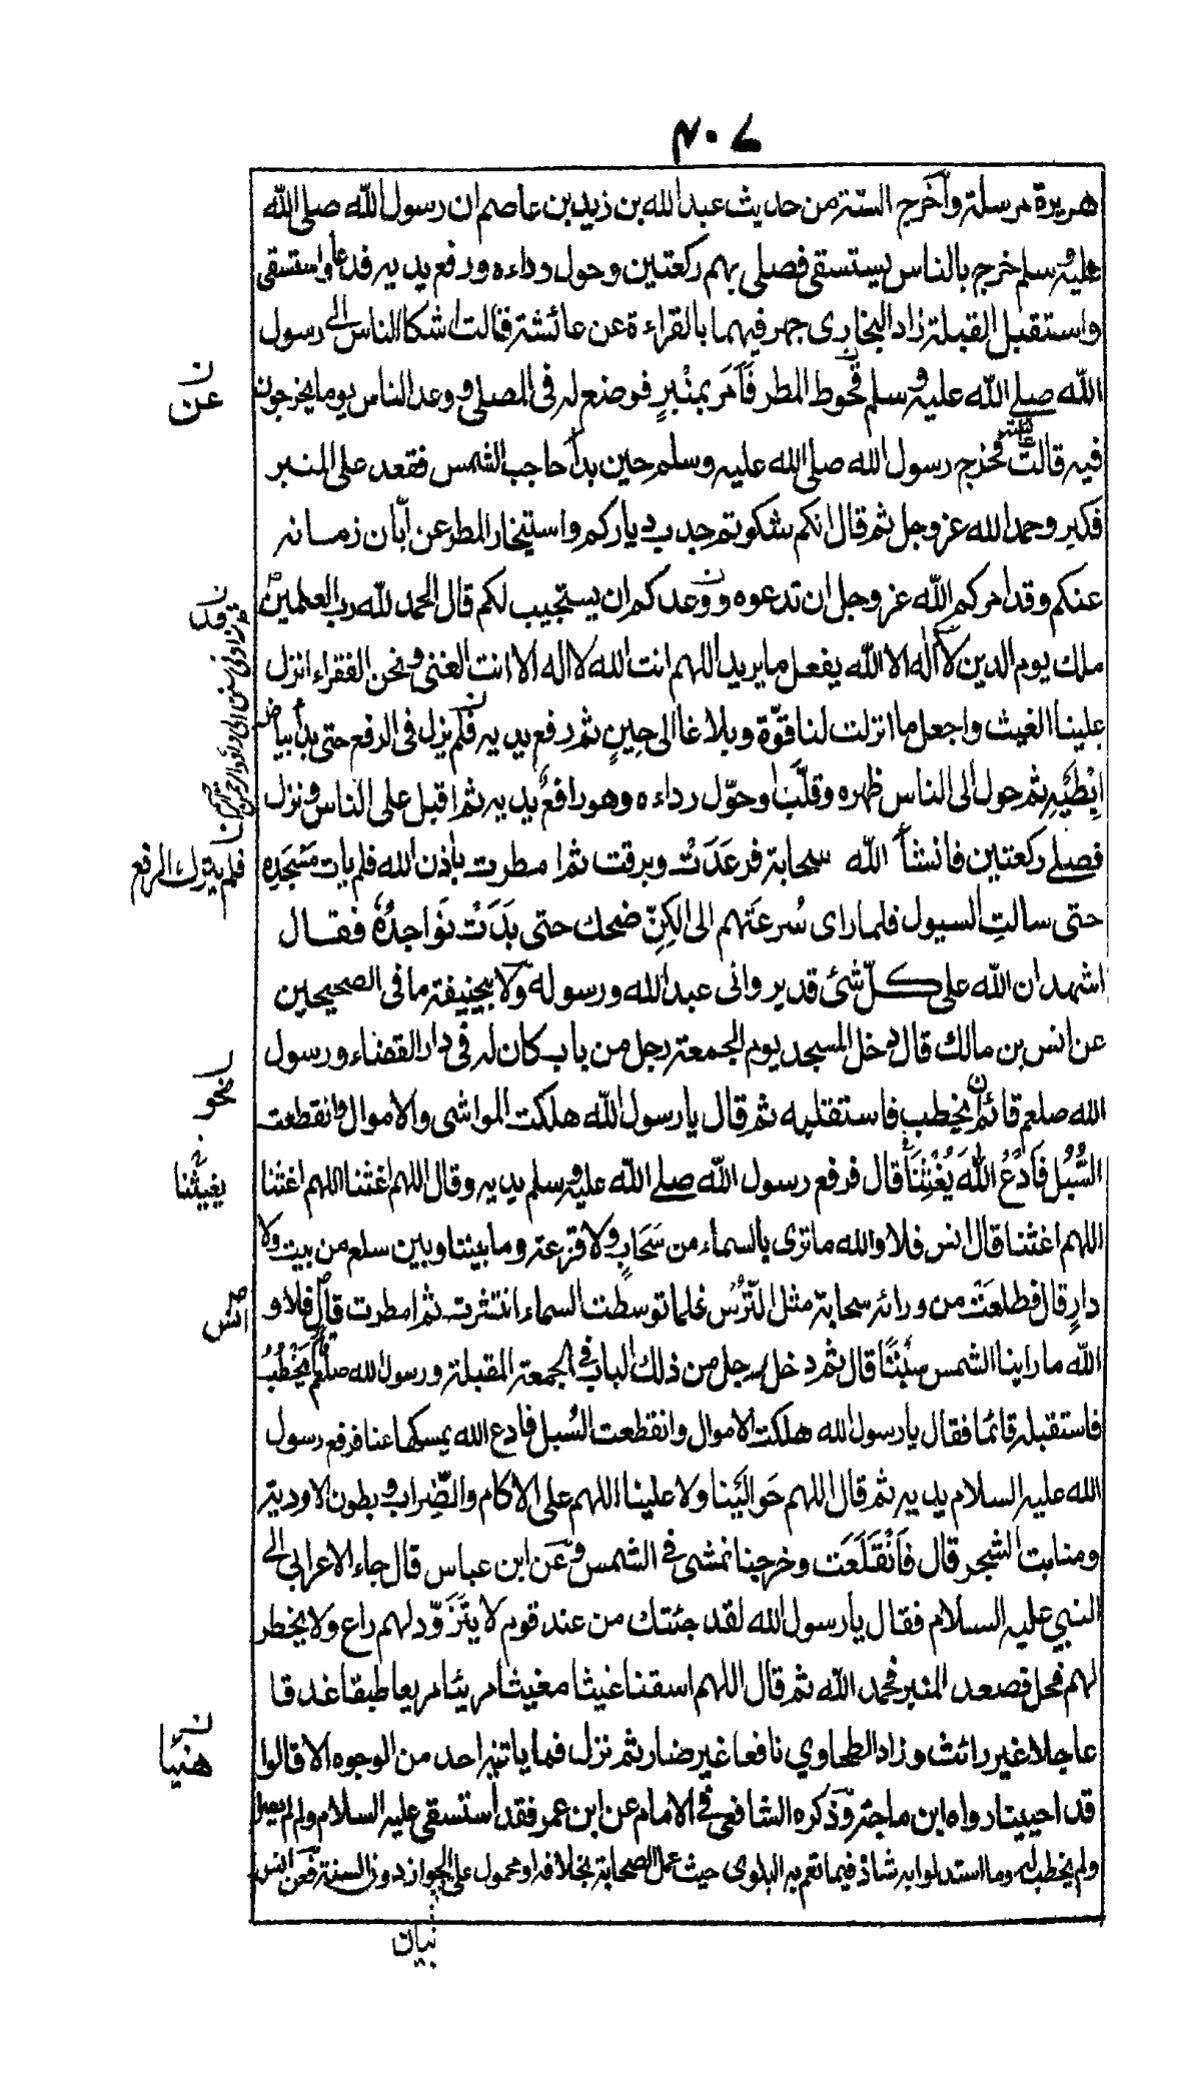 ٤٠٧
هريرة مرسلة وأخرج الستة من حديث عبد الله بن زيد بن عاصم ان رسول الله صلى الله
عليه وسلم خرج بالناس يستسقى فصلى بهم ركعتين وحول رداءه ورفع يديه فدعا واستسقى
واستقبل القبلة زاد البخارى جهر فيهما بالقراءة عن عائشة قالت شكا الناس الى رسول
الله صلے الله عليه وسلم قحوط المطر فَأمَر بمنْبرٍ فوضع له فى المصلى ووعد الناس يوما يخرجون
عن
فيه قالت عائشة فخرج رسول الله صلى الله عليه وسلم حين بدأ حاجب الشمس فقعد على المنبر
فكبر وحمد الله عز وجل ثم قال انكم شكوتم جدب دياركم واستيخار المطر عن ابّان زمانه
عنكم وقد امركم الله عز وجل ان تدعوه ووعدكم ان يستجيب لكم قال الحمد لله رب العلمين
وقد
ملك يوم الدين لا اله الا الله يفعل ما يريد اللهم انت الله لا اله الا انت الغنى ونحن الفقراء انزل
علينا الغيث واجعل ما انزلت لنا قوّة وبلاغا الى حِينٍ ثم رفع يديه فلم يزل فى الرفع حتى بدأ بياض
اِبْطَيْهِ ثم حول الى الناس ظهره وقلَّبَ اوحوّل رداءه وهو رافع يديه ثم اقبل على الناس ونزل
فصلے ركعتين فانشأ الله سحابة فرعَدَتْ وبرقت ثم امطرت باذن الله فلم يات مَسْجَدِه
فلم يترك الرفع
حتى سالتِ السيول فلما راى سُرعَتهم الى الكِنّ ضحك حتى بَدَتْ نَوَاجِذُهُ فقال
اشهد ان الله على كلّ شئ قدير وانى عبد الله ورسوله ولابيحنيفة ما فى الصحيحين
عن انس بن مالك قال دخل المسجد يوم الجمعة رجل من باب كان له فى دار القضاء ورسول
نحو
الله صلعم قائم يخطب فاستقبله ثم قال يا رسول الله هلكت المواشى والاموال وانقطعت
السُّبُل فَادْعُ اللّٰهَ يُغْثِنَا قال فرفع رسول الله صلے الله عليه وسلم يديه وقال اللهم اغثنا اللهم اغثنا
يغيثنا
اللهم اغثنا قال انس فلا والله ما ترى بالسماء من سَحَابٍ ولا قزعة وما بيننا وبين سلع من بيت ولا
دارٍ قال فطلعَتْ من ورائه سحابة مثل التّرْس فلما توسطت السماء انتثرت ثم امطرت قال فلا و
انس
الله ما راينا الشمس سَبْتًا قال ثم دخل رجل من ذلك الباب فى الجمعة المقبلة ورسول الله صلعم قائم يَخْطُبُ
فاستقبله قائما فقال يا رسول الله هلكت الاموال وانقطعت السُبل فادع الله يمسكها عنا فرفع رسول
الله عليه السلام يديه ثم قال اللهم حَوَالَيْنا ولا علينا اللهم على الاكام والظِّراب وبطون الاودية
ومنابت الشجر قال فَانْقَلَعَت وخرجنا نمشى فى الشمس وعن ابن عباس قال جاء الاعرابى الى
النبي عليه السلام فقال يا رسول الله لقد جئتك من عند قوم لا يتَزَوّد لهم راع ولا يخطر
لهم فحل فصعد المنبر فحمد الله ثم قال اللهم اسقنا غيثا مغيثا مريئا مريعا طبقا غدقا
عاجلا غير رائث وزاد الطحاوي نافعا غير ضار ثم نزل فما ياتيه احد من الوجوه الا قالوا
هنيئا
قد احيينا رواه ابن ماجة وذكره الشافعى فى الامام عن ابن عمر فقد استسقى عليه السلام ولم يصل
ولم يخطب له وما استدلوا به شاذ فيما تعم به البلوى حيث عمل الصحابة بخلافه او محمول على الجواز دون السنة فعن انس
نبيان